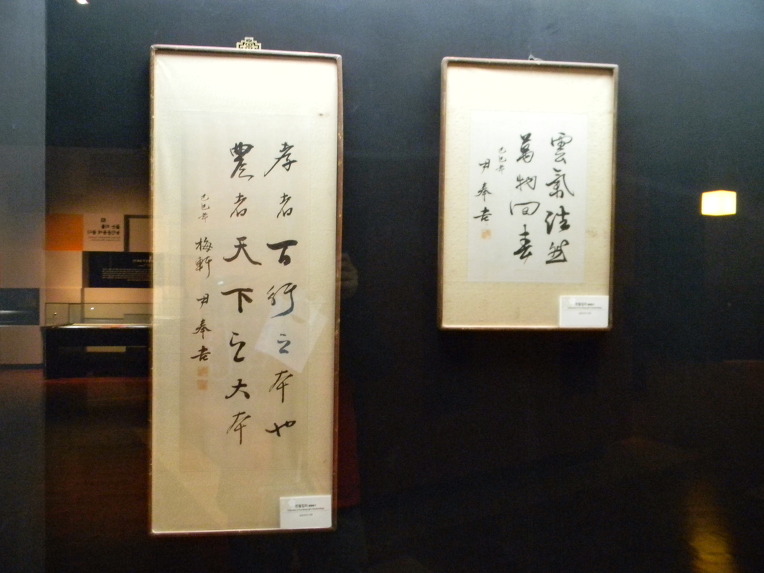 孝者百行之本也
農者天下之大本
己巳年 梅軒 尹奉吉
雲氣浩然
萬物回春
己巳年
尹奉吉